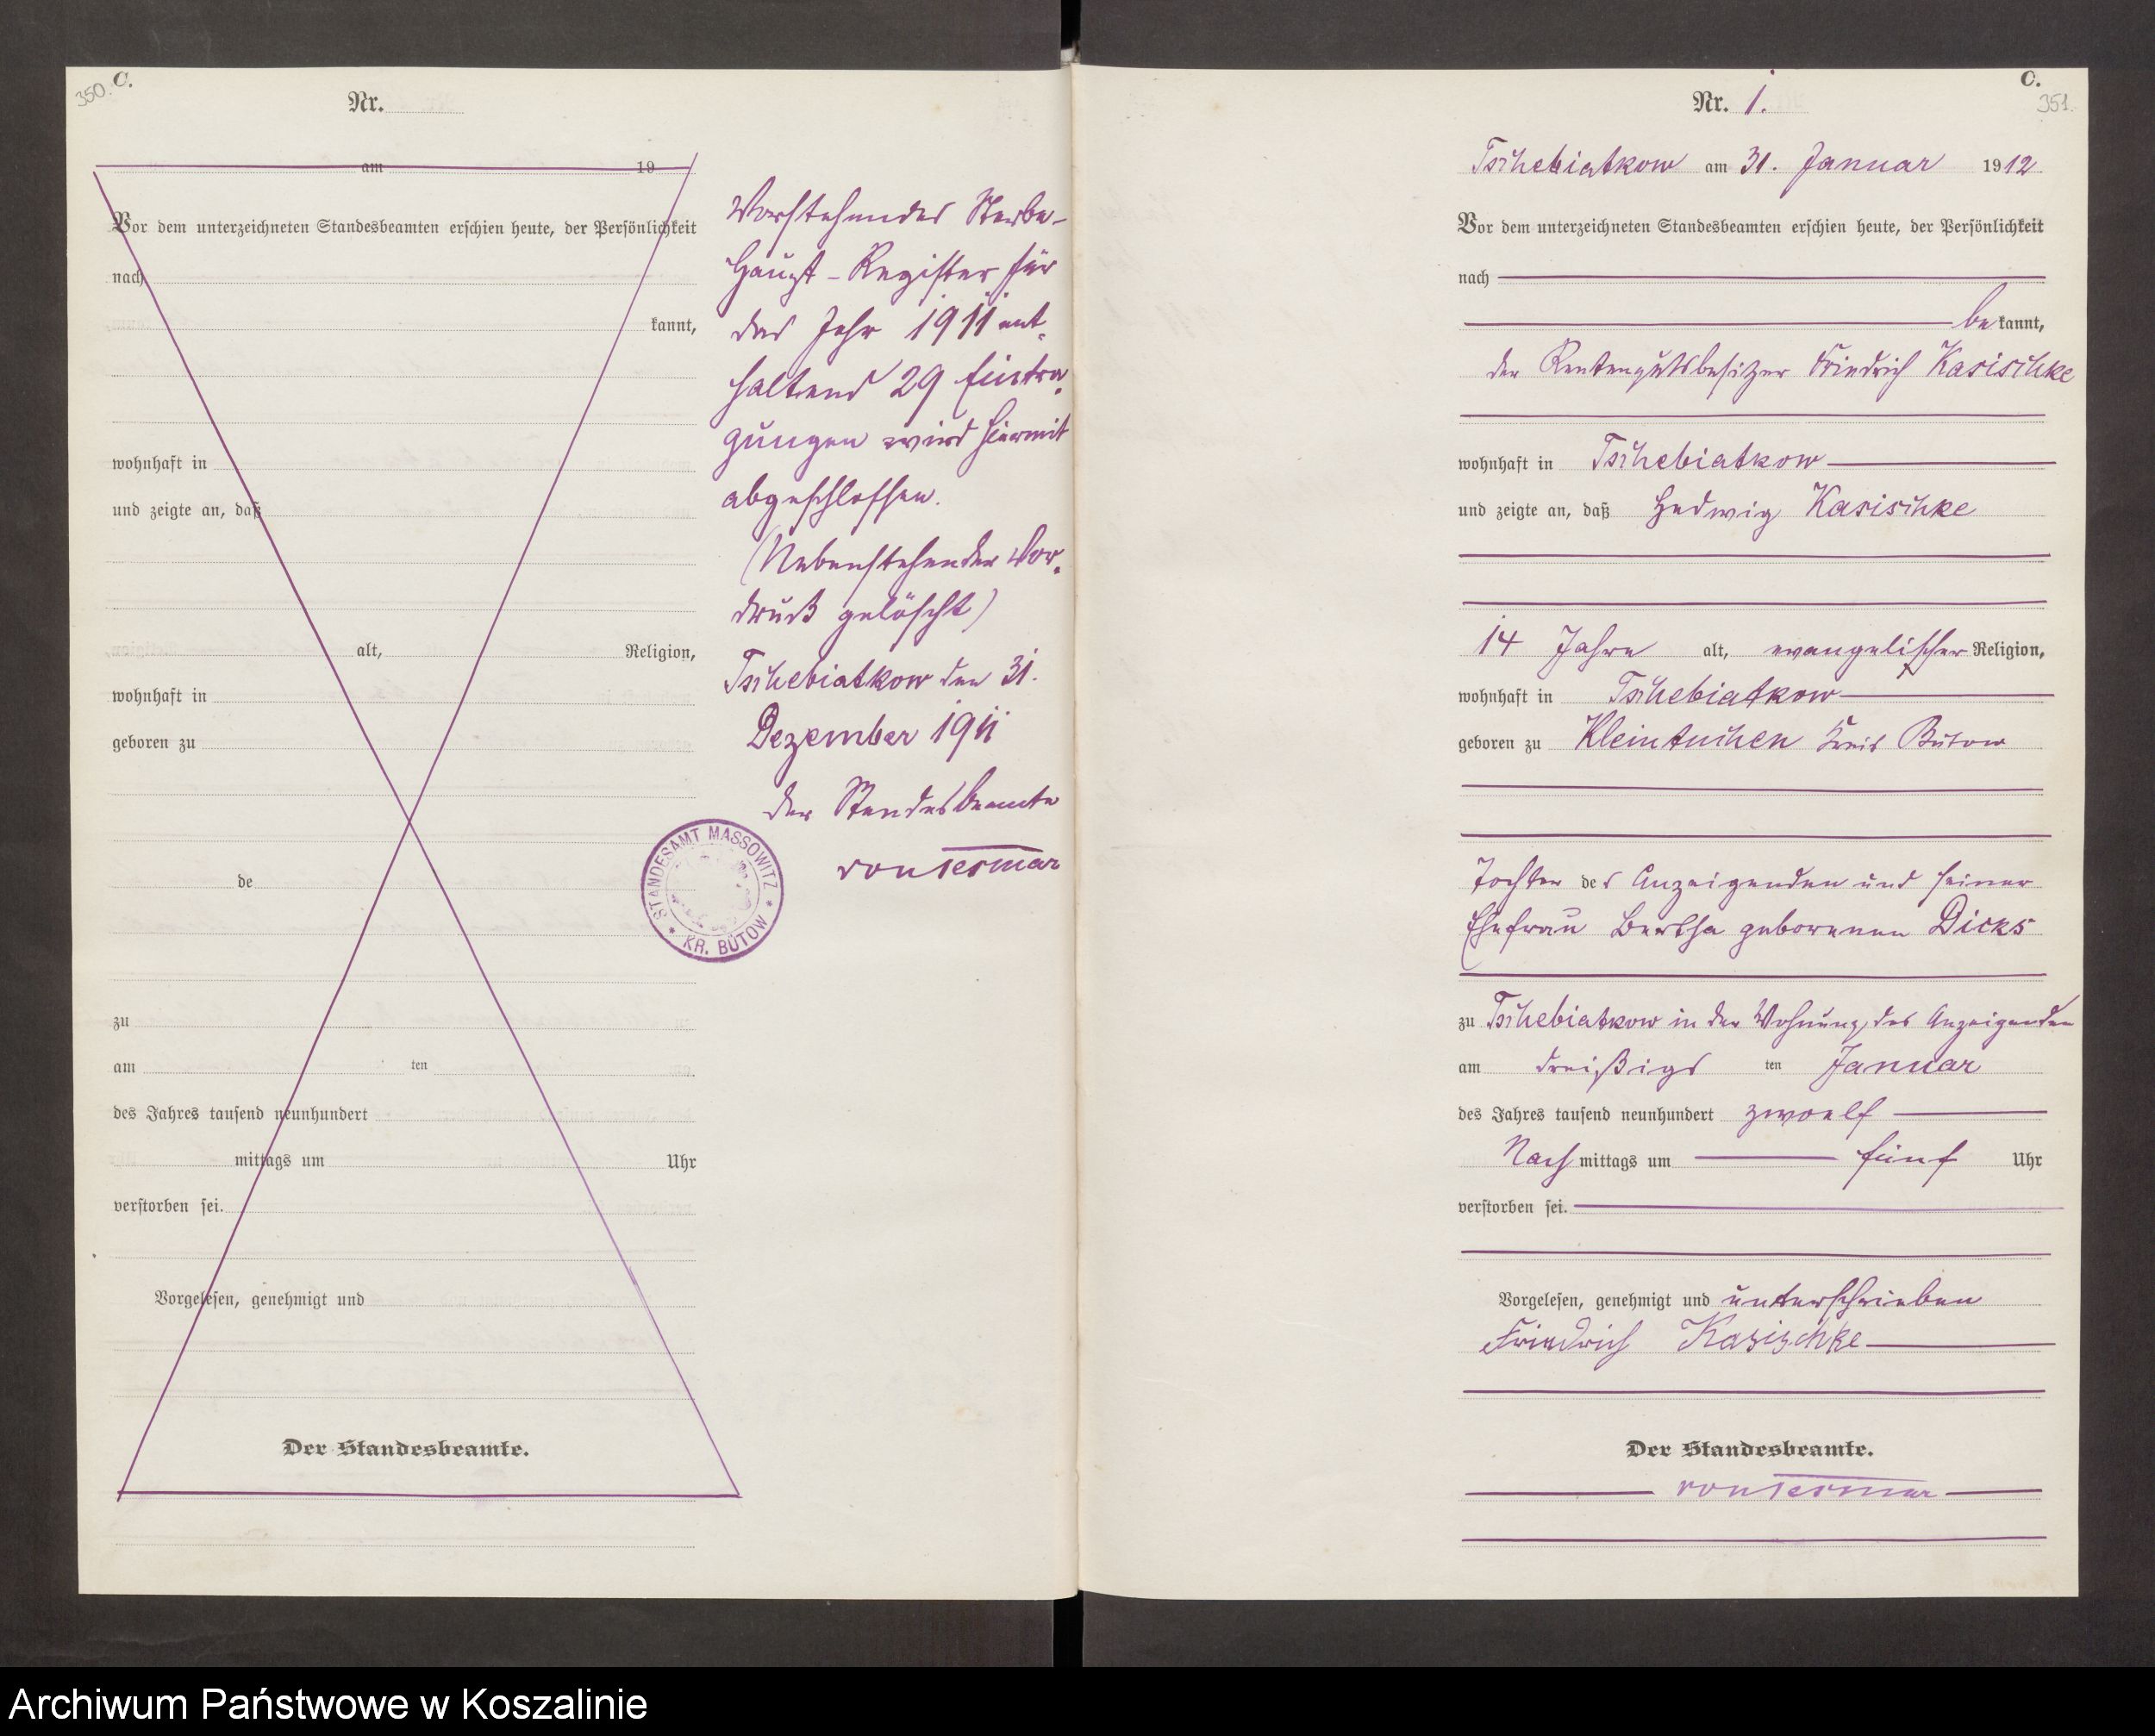 350. C.
Nr.
am 19
Vor dem unterzeichneten Standesbeamten erschien heute, der Persönlichkeit
nach
kannt,
wohnhaft in
und zeigte an, daß
alt, Religion,
wohnhaft in
geboren zu
de
zu
am ten
des Jahres tausend neunhundert
mittags um Uhr
verstorben sei.
Vorgelesen, genehmigt und
Der Standesbeamte.
Vorstehendes Sterbe-
Haupt-Register für
das Jahr 1911 ent-
haltend 29 Eintra-
gungen wird hiermit
abgeschlossen.
(Nebenstehender Vor-
druck gelöscht)
Tschebiatkow den 31.
Dezember 1911
Der Standesbeamte
von Tesmar
STANDESAMT MASSOWITZ
* KR. BÜTOW *
C.
351.
Nr. 1.
Tschebiatkow am 31. Januar 1912
Vor dem unterzeichneten Standesbeamten erschien heute, der Persönlichkeit
nach
bekannt,
der Rentengutsbesitzer Friedrich Kasischke
wohnhaft in Tschebiatkow
und zeigte an, daß Hedwig Kasischke
14 Jahre alt, evangelischer Religion,
wohnhaft in Tschebiatkow
geboren zu Kleintuchen Kreis Bütow
Tochter des Anzeigenden und seiner
Ehefrau Bertha geborenen Dicks
zu Tschebiatkow in der Wohnung des Anzeigenden
am dreißigs ten Januar
des Jahres tausend neunhundert zwoelf
Nachmittags um fünf Uhr
verstorben sei.
Vorgelesen, genehmigt und unterschrieben
Friedrich Kasischke
Der Standesbeamte.
von Tesmar
Archiwum Państwowe w Koszalinie